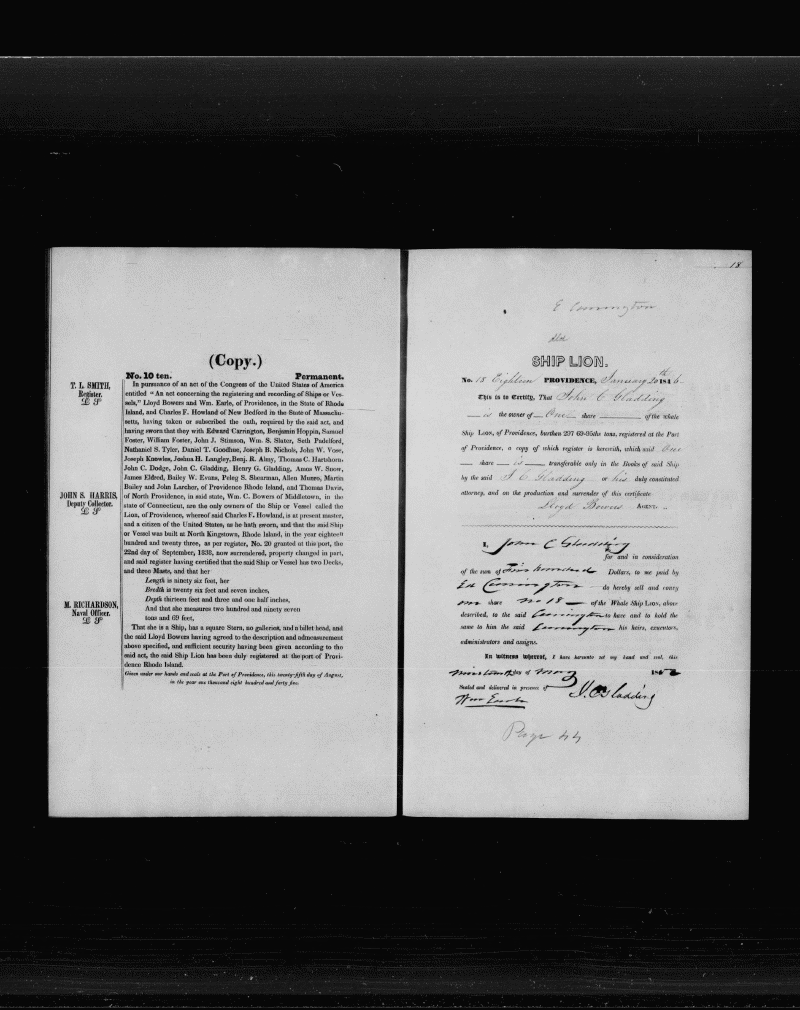 (Copy.)
No. 10 ten. Permanent.
T. L. SMITH,
Register.
L S
JOHN S. HARRIS,
Deputy Collector.
L S
M. RICHARDSON,
Naval Officer.
L S
In pursuance of an act of the Congress of the United States of America
entitled "An act concerning the registering and recording of Ships or Ves-
sels," Lloyd Bowers and Wm. Earle, of Providence, in the State of Rhode
Island, and Charles F. Howland of New Bedford in the State of Massachu-
setts, having taken or subscribed the oath, required by the said act, and
having sworn that they with Edward Carrington, Benjamin Hoppin, Samuel
Foster, William Foster, John J. Stimson, Wm. S. Slater, Seth Padelford,
Nathaniel S. Tyler, Daniel T. Goodhue, Joseph B. Nichols, John W. Vose,
Joseph Knowles, Joshua H. Langley, Benj. R. Almy, Thomas C. Hartshorn,
John C. Dodge, John C. Gladding, Henry G. Gladding, Amos W. Snow,
James Eldred, Bailey W. Evans, Peleg S. Shearman, Allen Munro, Martin
Bailey and John Larcher, of Providence Rhode Island, and Thomas Davis,
of North Providence, in said state, Wm. C. Bowers of Middletown, in the
state of Connecticut, are the only owners of the Ship or Vessel called the
Lion, of Providence, whereof said Charles F. Howland, is at present master,
and a citizen of the United States, as he hath sworn, and that the said Ship
or Vessel was built at North Kingstown, Rhode Island, in the year eighteen
hundred and twenty three, as per register, No. 20 granted at this port, the
22nd day of September, 1838, now surrendered, property changed in part,
and said register having certified that the said Ship or Vessel has two Decks,
and three Masts, and that her
Length is ninety six feet, her
Bredth is twenty six feet and seven inches,
Depth thirteen feet and three and one half inches,
And that she measures two hundred and ninety seven
tons and 69 feet,
That she is a Ship, has a square Stern, no galleries, and a billet head, and
the said Lloyd Bowers having agreed to the description and admeasurement
above specified, and sufficient security having been given according to the
said act, the said Ship Lion has been duly registered at the port of Provi-
dence Rhode Island.
Given under our hands and seals at the Port of Providence, this twenty-fifth day of August,
in the year one thousand eight hundred and forty five.
18
E Carrington
SHIP LION.
No. 18 Eighteen PROVIDENCE, January 20th 1846.
This is to Certify, That John C Gladding
is the owner of One share of the whole
Ship LION, of Providence, burthen 297 69-95ths tons, registered at the Port
of Providence, a copy of which register is herewith, which said One
share is transferable only in the Books of said Ship
by the said J C Gladding or his duly constituted
attorney, and on the production and surrender of this certificate
Lloyd Bowers AGENT
I, John C Gladding
for and in consideration
of the sum of Five hundred Dollars, to me paid by
Ed Carrington do hereby sell and convey
one share No 18 of the Whole Ship LION, above
described, to the said Carrington to have and to hold the
same to him the said Carrington his heirs, executors,
administrators and assigns.
In witness whereof, I have hereunto set my hand and seal, this
nineteenth day of May 184
Sealed and delivered in presence of J. C Gladding
Page 44